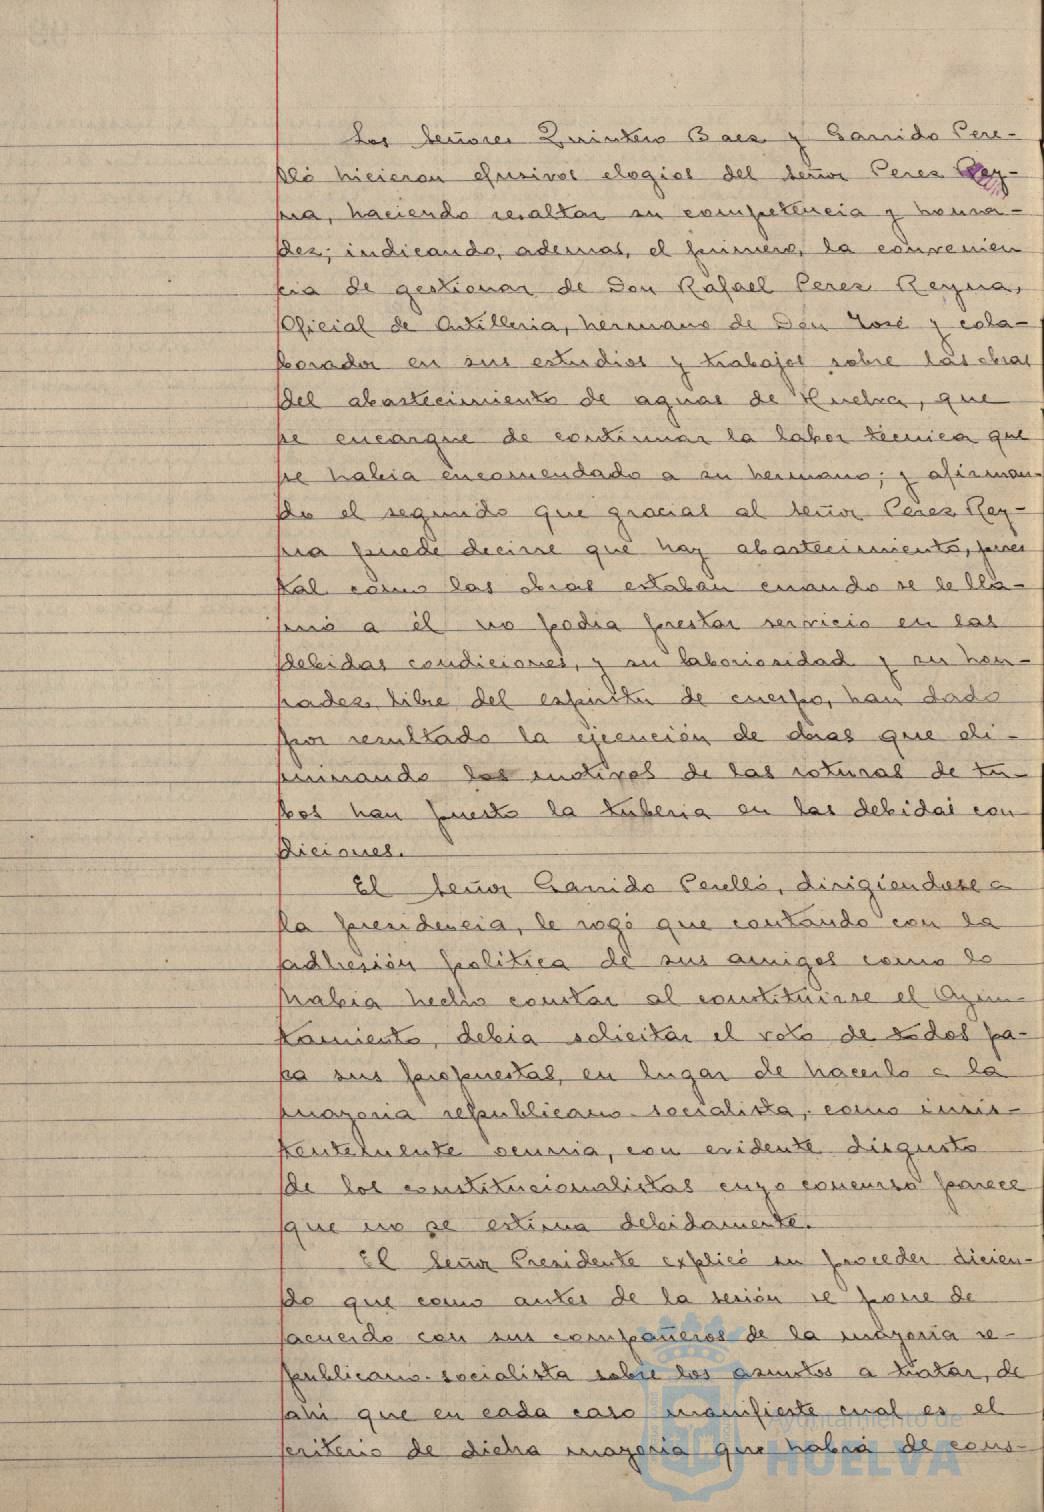 Los Señores Quintero Baez y Garrido Pere-
lló hicieron efusivos elogios del Señor Perez Rey-
na, haciendo resaltar su competencia y honra-
dez; indicando, ademas, el primero, la convenien
cia de gestionar de Don Rafael Perez Reyna,
Oficial de Artilleria, hermano de Don José y cola-
borador en sus estudios y trabajos sobre las obras
del abastecimiento de aguas de Huelva, que
se encargue de continuar la labor técnica que
se habia encomendado a su hermano; y afirman-
do el segundo que gracias al Señor Perez Rey-
na puede decirse que hay abastecimiento, pues
tal como las obras estaban cuando se le lla-
mó a él no podia prestar servicio en las
debidas condiciones, y su laboriosidad y su hon-
radez, libre del espiritu de cuerpo, han dado
por resultado la ejecución de obras que eli-
minando los motivos de las roturas de tu-
bos han puesto la tuberia en las debidas con
diciones.
El Señor Garrido Perelló, dirigiendose a
la presidencia, le rogó que contando con la
adhesión politica de sus amigos como lo
habia hecho constar al constituirse el Ayun-
tamiento, debia solicitar el voto de todos pa-
ra sus propuestas, en lugar de hacerlo a la
mayoria republicano-socialista, como insis-
tentemente ocurria, con evidente disgusto
de los constitucionalistas cuyo concurso parece
que no se estima debidamente.
El Señor Presidente explicó su proceder dicien-
do que como antes de la sesión se pone de
acuerdo con sus compañeros de la mayoria re-
publicano-socialista sobre los asuntos a tratar, de
ahi que en cada caso manifieste cual es el
criterio de dicha mayoria que habrá de cons-
Ayuntamiento de
HUELVA